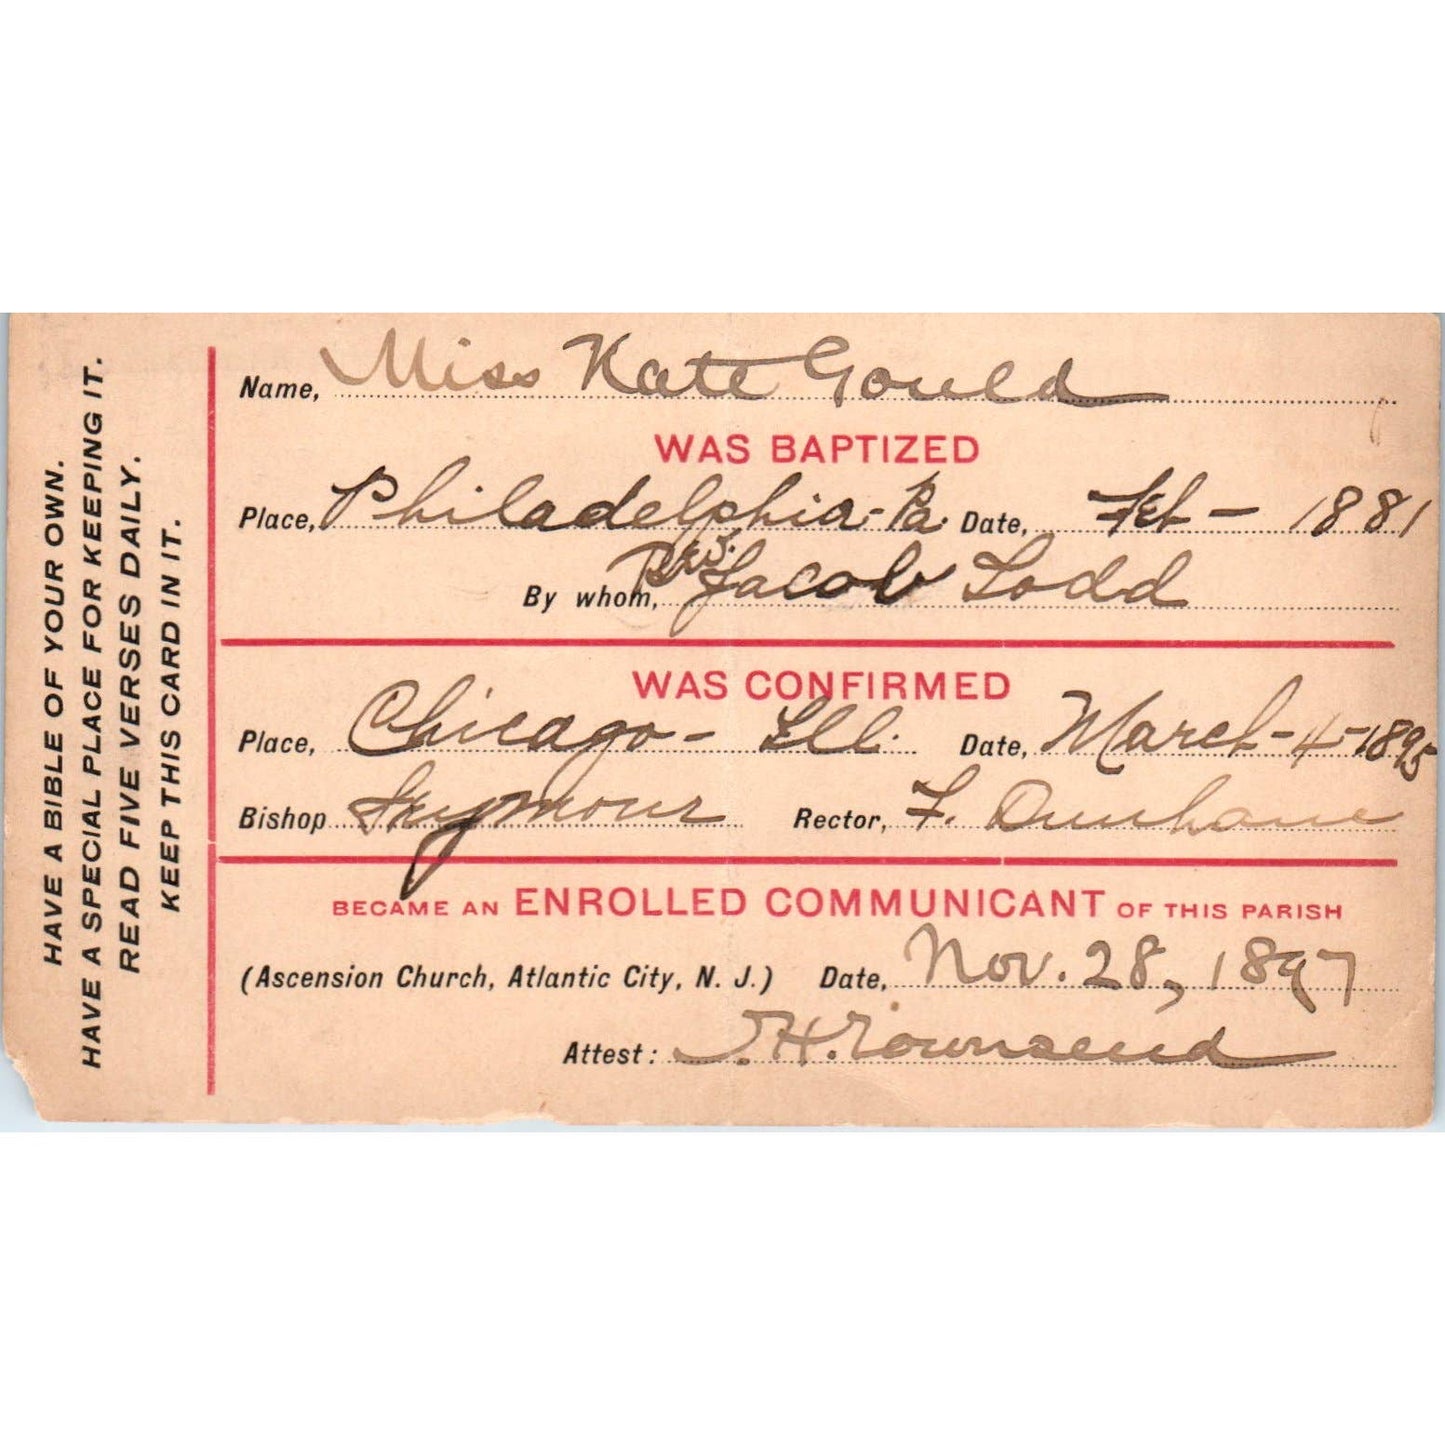 HAVE A BIBLE OF YOUR OWN.
HAVE A SPECIAL PLACE FOR KEEPING IT.
READ FIVE VERSES DAILY.
KEEP THIS CARD IN IT.
Name, Miss Kate Gould
WAS BAPTIZED
Place, Philadelphia - Pa. Date, Feb - 1881
By whom, Jacob Todd
WAS CONFIRMED
Place, Chicago - Ill. Date, March - 4 - 1895
Bishop Seymour Rector, F. Dunhame
BECAME AN ENROLLED COMMUNICANT OF THIS PARISH
(Ascension Church, Atlantic City, N. J.) Date, Nov. 28, 1897
Attest: J. H. Townsend